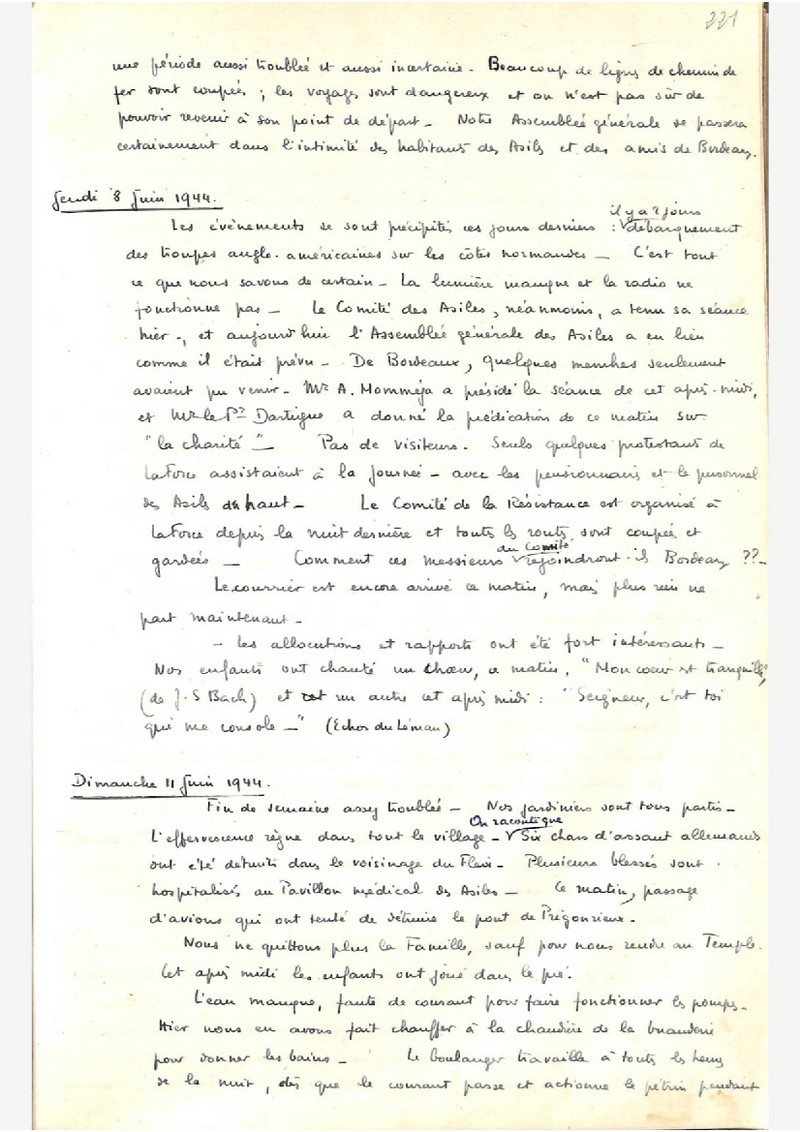 221
une période aussi troublée et aussi incertaine - Beaucoup de lignes de chemin de
fer sont coupées ; les voyages sont dangereux et on n'est pas sûr de
pouvoir revenir à son point de départ - Notre Assemblée générale se passera
certainement dans l'intimité des habitants des Asiles et des amis de Bordeaux.
Jeudi 8 Juin 1944.
il y a 2 jours
Les évènements se sont précipités ces jours derniers : V débarquement
des troupes anglo-américaines sur les côtes normandes - C'est tout
ce que nous savons de certain - La lumière manque et la radio ne
fonctionne pas - Le Comité des Asiles, néanmoins, a tenu sa séance
hier -, et aujourd'hui l'Assemblée générale des Asiles a eu lieu
comme il était prévu - De Bordeaux, quelques membres seulement
avaient pu venir - Mr A. Momméja a présidé la séance de cet après-midi,
et Mr le Pr Dartigue a donné la prédication de ce matin sur
"la charité" - Pas de visiteurs. Seuls quelques protestants de
LaForce assistaient à la journée - avec les pensionnaires et le personnel
des Asiles du haut - Le Comité de la Résistance est organisé à
LaForce depuis la nuit dernière et toutes les routes sont coupées et
du Comité
gardées - Comment ces messieurs V rejoindront-ils Bordeaux ??-
Le courrier est encore arrivé ce matin, mais plus rien ne
part maintenant -
- Les allocutions et rapports ont été fort intéressants -
Nos enfants ont chanté un chœur, ce matin, "Mon cœur est tranquille",
(de J.S Bach) et un autre cet après midi : "Seigneur, c'est toi
qui me console -" (Echos du Léman)
Dimanche 11 Juin 1944.
Fin de semaine assez troublée - Nos jardiniers sont tous partis -
On raconte que
L'effervescence règne dans tout le village - V Six chars d'assaut allemands
ont été détruits dans le voisinage du Fleix - Plusieurs blessés sont
hospitalisés au Pavillon médical des Asiles - Ce matin, passage
d'avions qui ont tenté de détruire le pont de Prigonrieux -
Nous ne quittons plus la Famille, sauf pour nous rendre au Temple.
Cet après midi les enfants ont joué dans le pré.
L'eau manque, faute de courant pour faire fonctionner les pompes -
Hier nous en avons fait chauffer à la chaudière de la buanderie
pour donner les bains - Le boulanger travaille à toutes les heures
de la nuit, dès que le courant passe et actionne le pétrin pendant